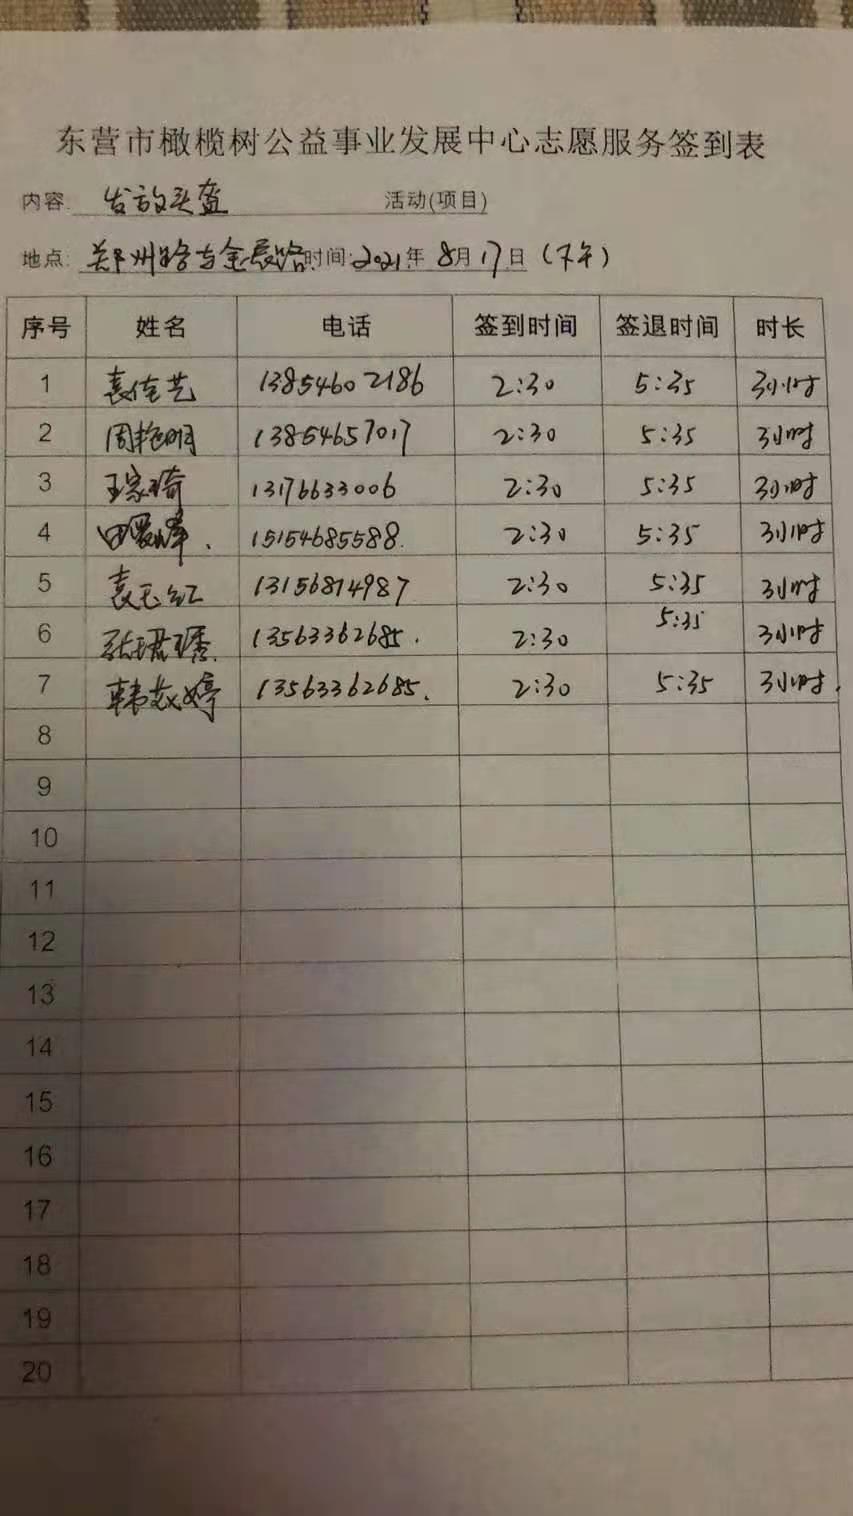 东营市橄榄树公益事业发展中心志愿服务签到表
内容: 发放头盔 活动(项目)
地点: 郑州路与金辰路 时间: 2021年 8月17日 (下午)
序号 姓名 电话 签到时间 签退时间 时长
1 袁佳艺 13854602186 2:30 5:35 3小时
2 周艳明 13854657017 2:30 5:35 3小时
3 王家琦 13176633006 2:30 5:35 3小时
4 田 15154685588. 2:30 5:35 3小时
5 袁玉红 13156814987 2:30 5:35 3小时
6 张珺琇 13563362685. 2:30 5:35 3小时
7 韩婷 13563362685. 2:30 5:35 3小时.
8
9
10
11
12
13
14
15
16
17
18
19
20